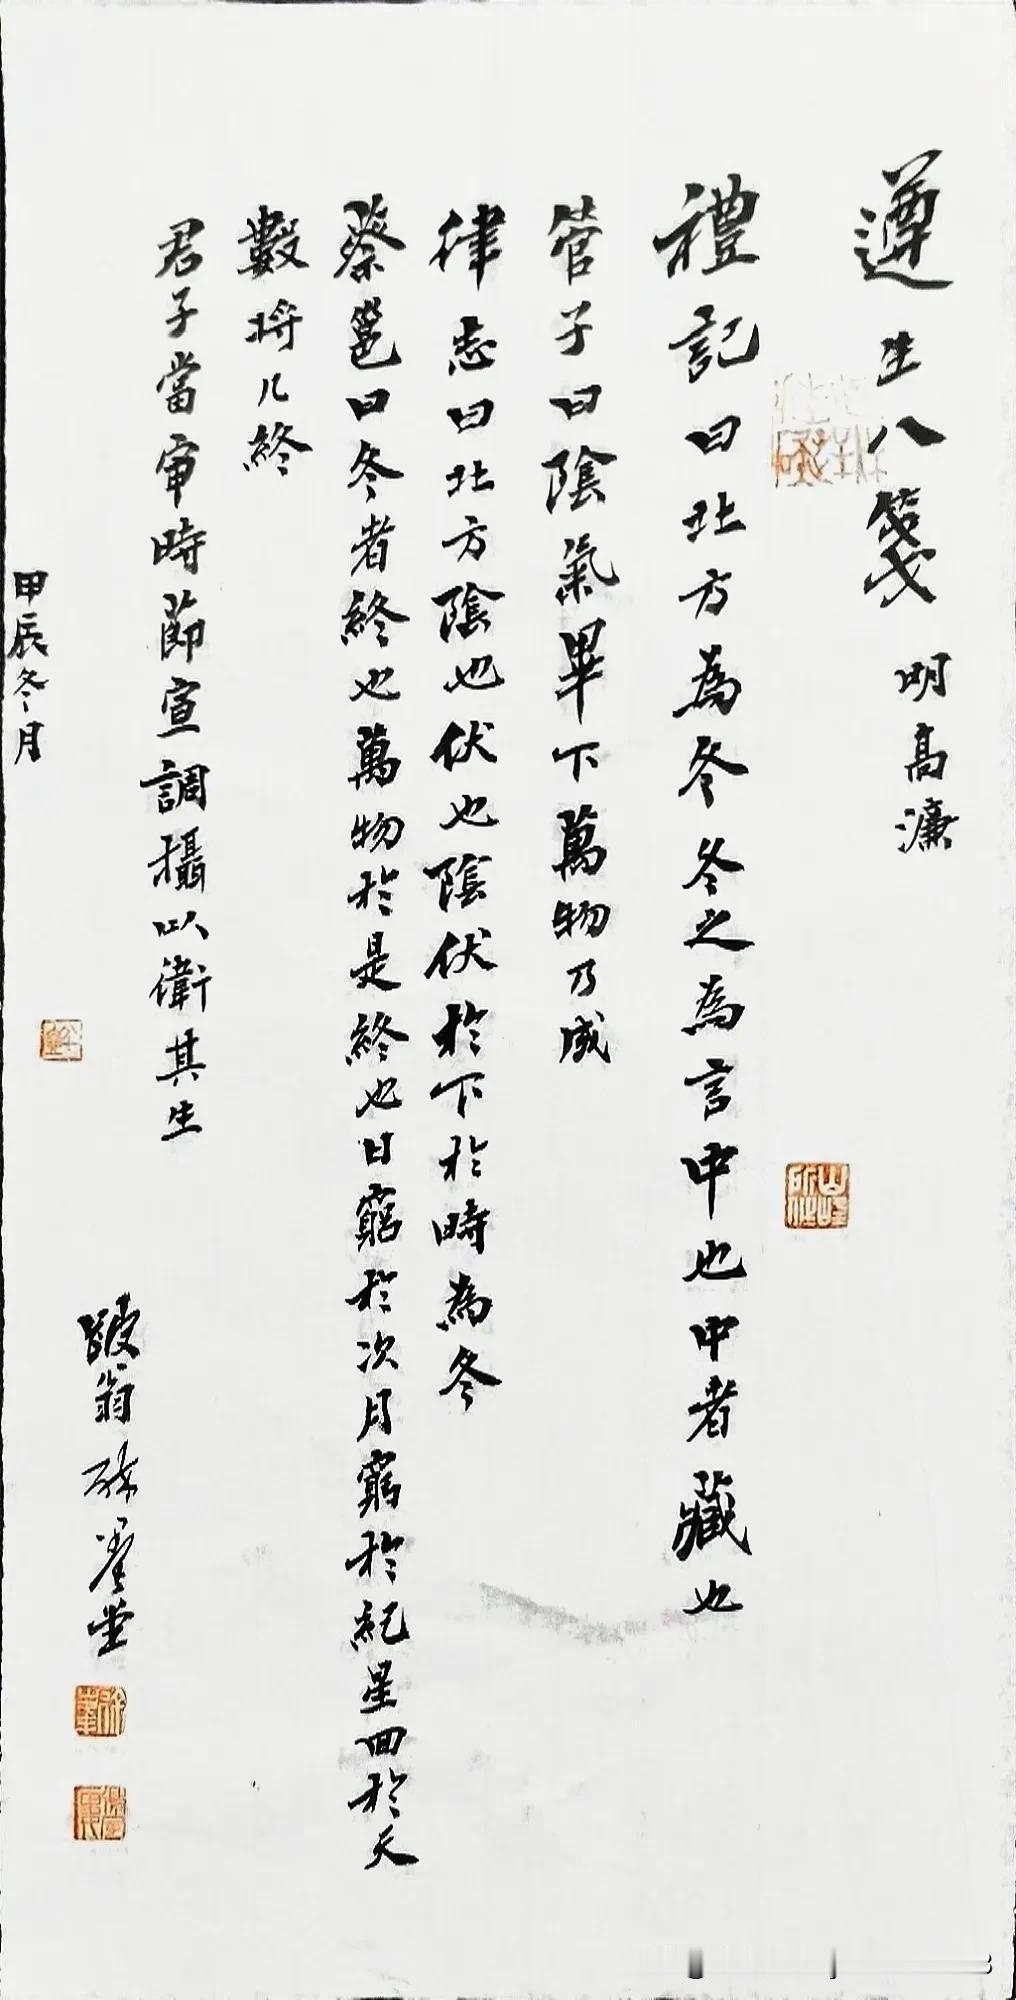 遵生八箋 明高濂
禮記曰北方為冬冬之為言中也中者藏也
管子曰陰氣畢下萬物乃成
律志曰北方陰也伏也陰伏於下於時為冬
蔡邕曰冬者終也萬物於是終也日窮於次月窮於紀星回於天
數将几終
君子當审時節宣調攝以衛其生
甲辰冬月
翁